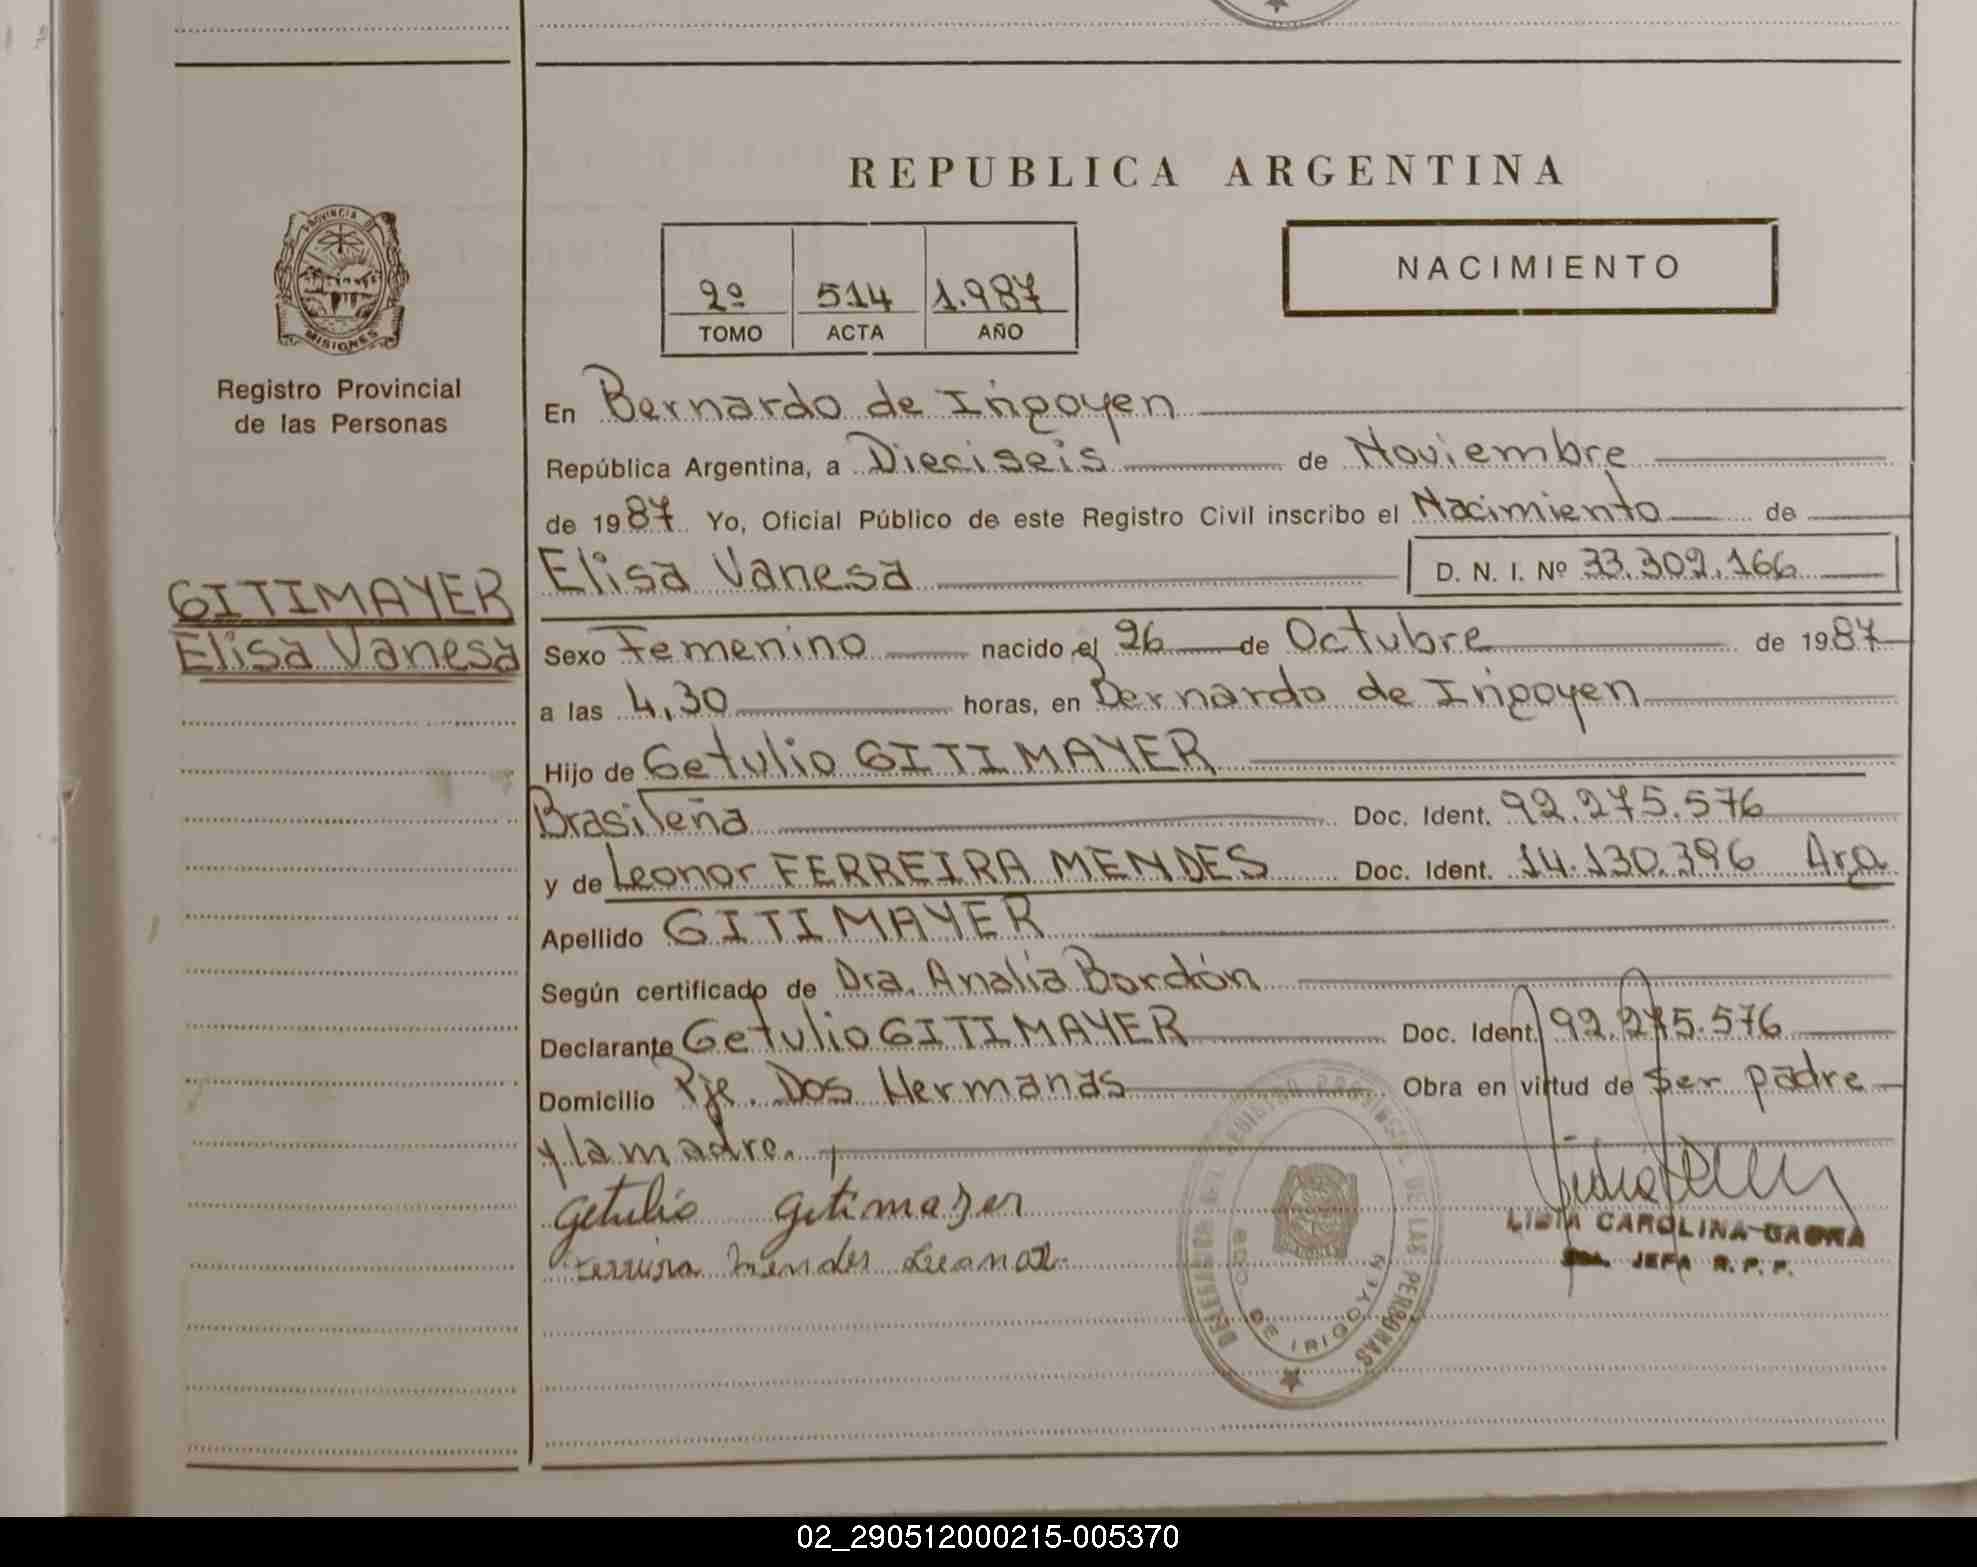 REPUBLICA ARGENTINA
PROVINCIA DE
MISIONES
Registro Provincial
de las Personas
2º 514 1.987
TOMO ACTA AÑO
NACIMIENTO
En Bernardo de Irigoyen
República Argentina, a Dieciseis de Noviembre
de 1987 Yo, Oficial Público de este Registro Civil inscribo el Nacimiento de
Elisa Vanesa D. N. I. Nº 33.309.166
GITIMAYER
Elisa Vanesa
Sexo Femenino nacido el 26 de Octubre de 1987
a las 4,30 horas, en Bernardo de Irigoyen
Hijo de Getulio GITIMAYER
Brasileña Doc. Ident. 92.275.576
y de Leonor FERREIRA MENDES Doc. Ident. 14.130.396 Arg
Apellido GITIMAYER
Según certificado de Dra. Analía Bordón
Declarante Getulio GITIMAYER Doc. Ident. 92.275.576
Domicilio Pje. Dos Hermanas Obra en virtud de Ser padre
y la madre.
Getulio Gitimayer
Ferreira Mendes Leonor
LIDIA CAROLINA
JEFA R. P. P.
DELEGACION DEL REGISTRO PROVINCIAL DE LAS PERSONAS
BDO. DE IRIGOYEN
02_290512000215-005370